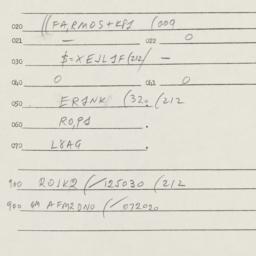 020 ((FA,RMOS+KPJ (009
021 — 022 0
030 $=XEJLJF(212/ —
040 0 041 0
050 ERJNK (32. (212
060 RO,PJ .
070 L8AG .
900 ROJKR (/125030 (212
900 GM AFMRDNO (/072020